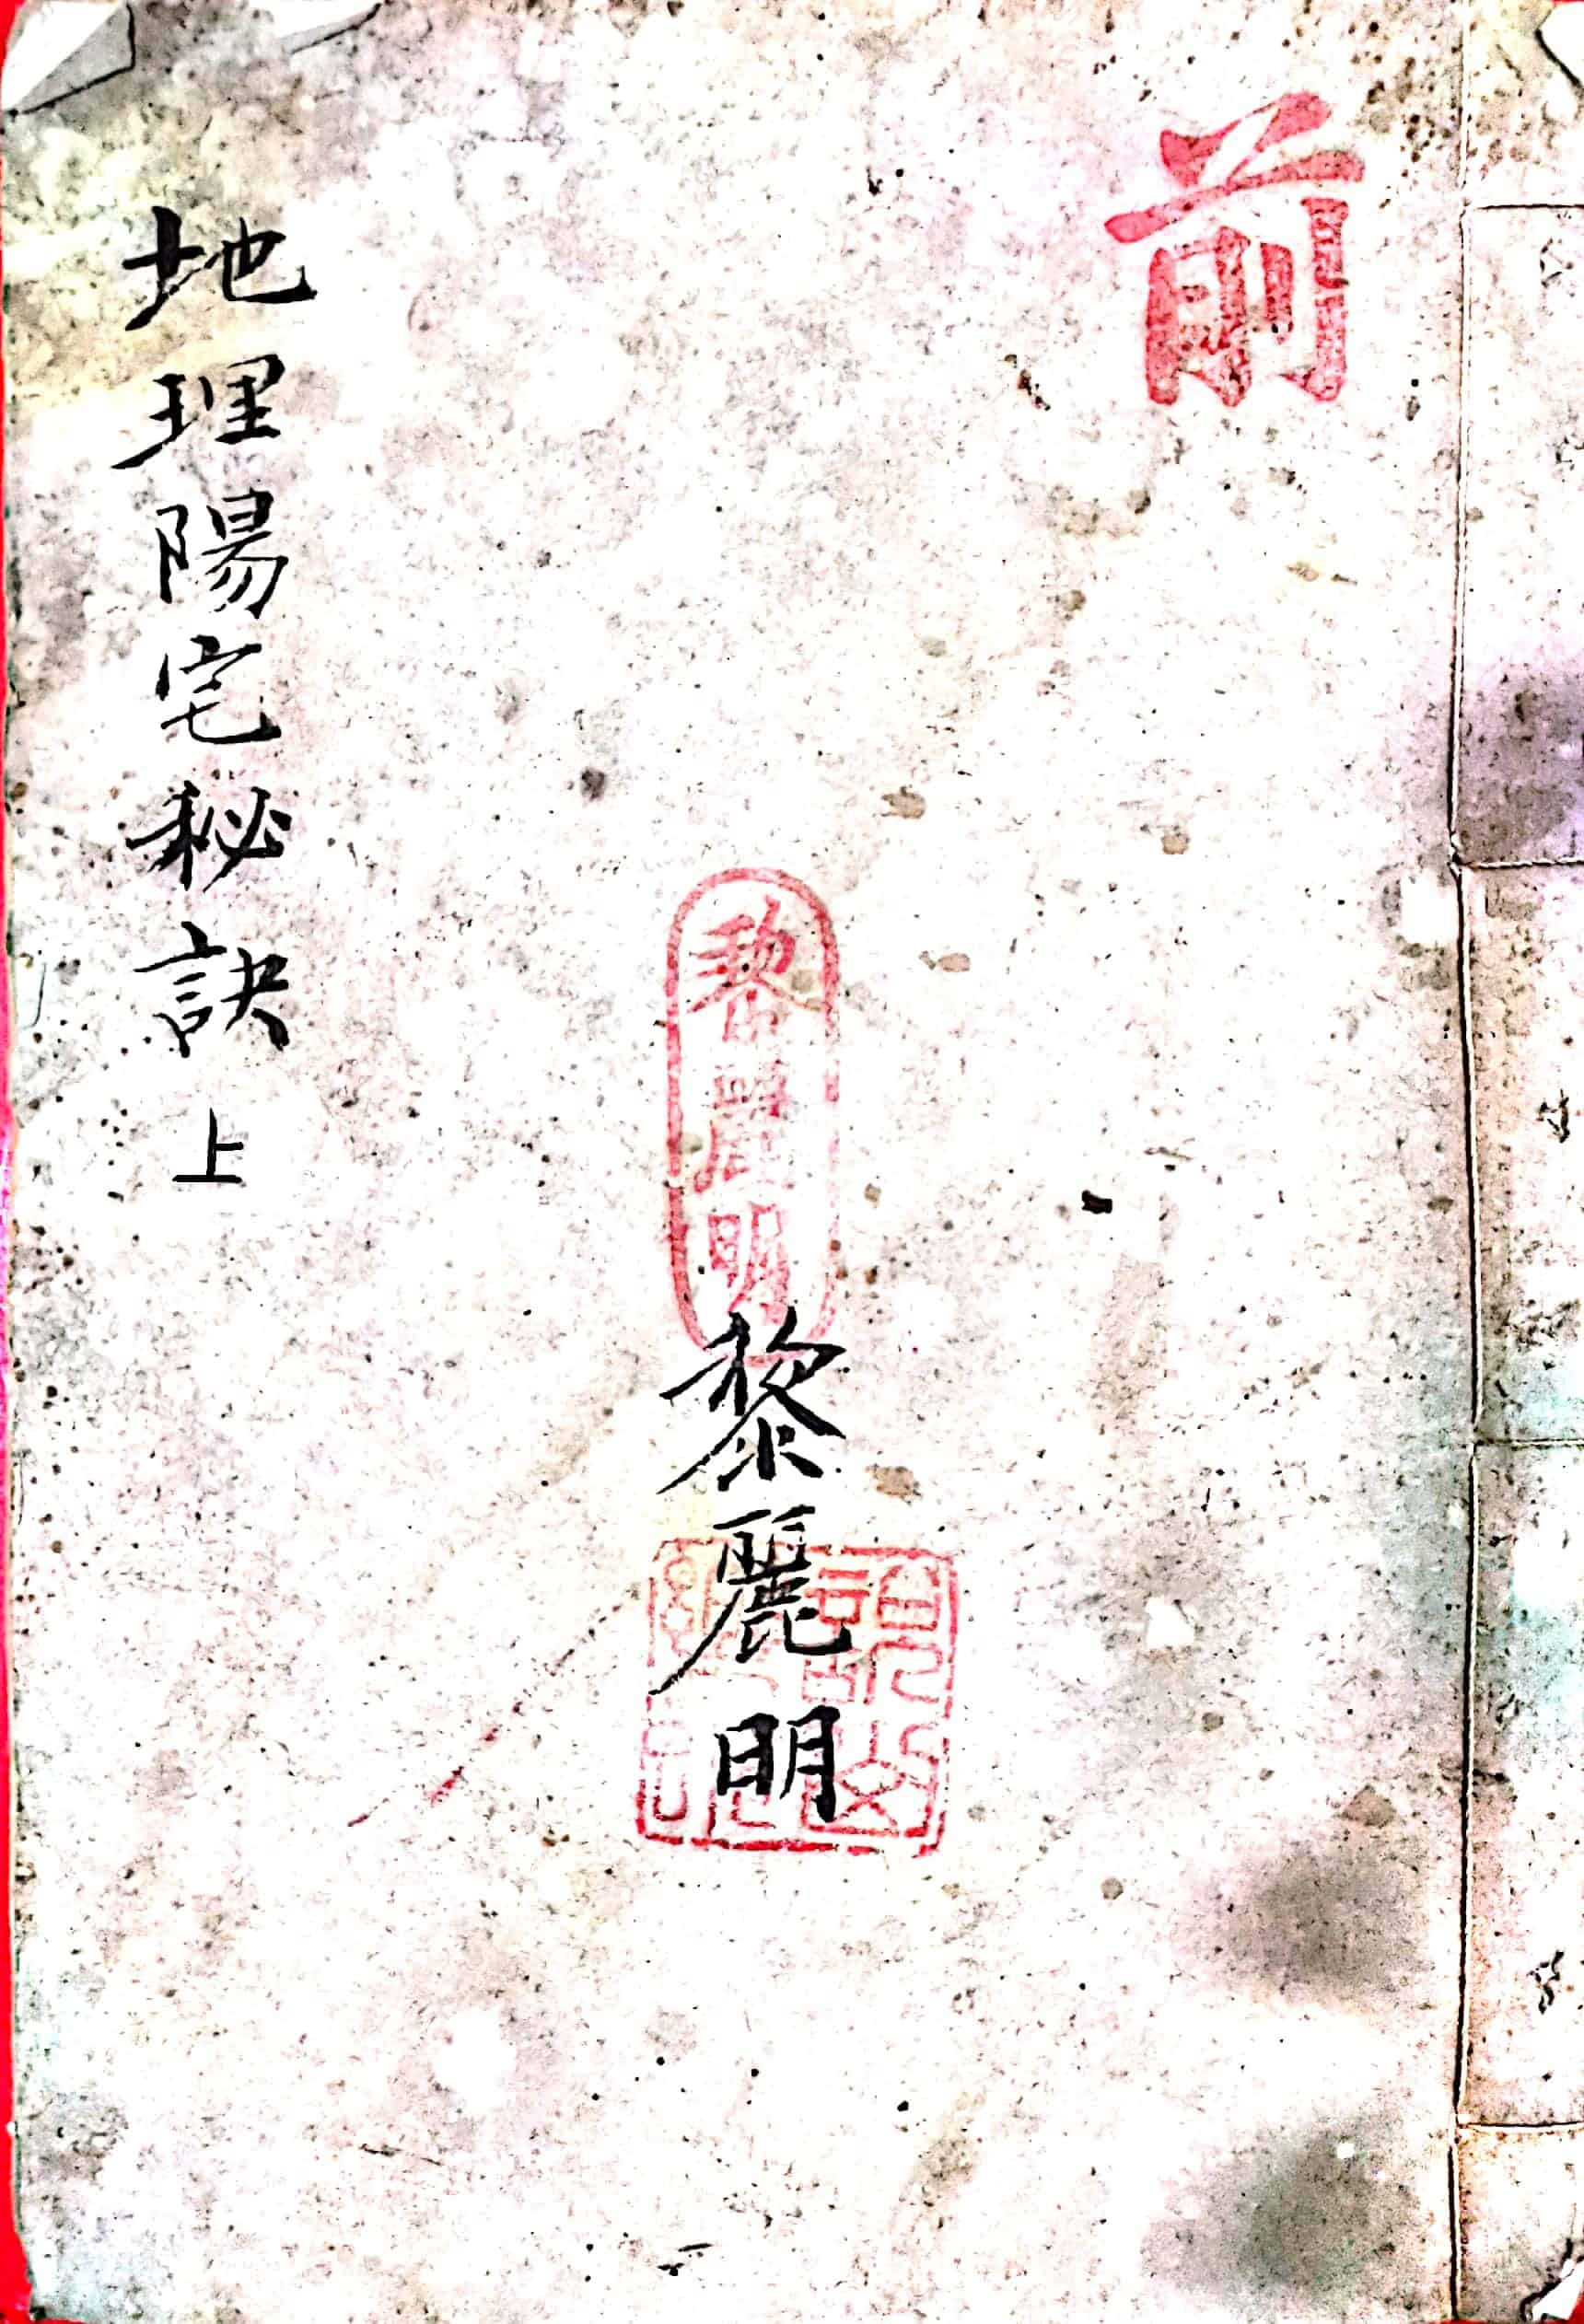 前
黎麗明
黎麗明
地理陽宅秘訣 上